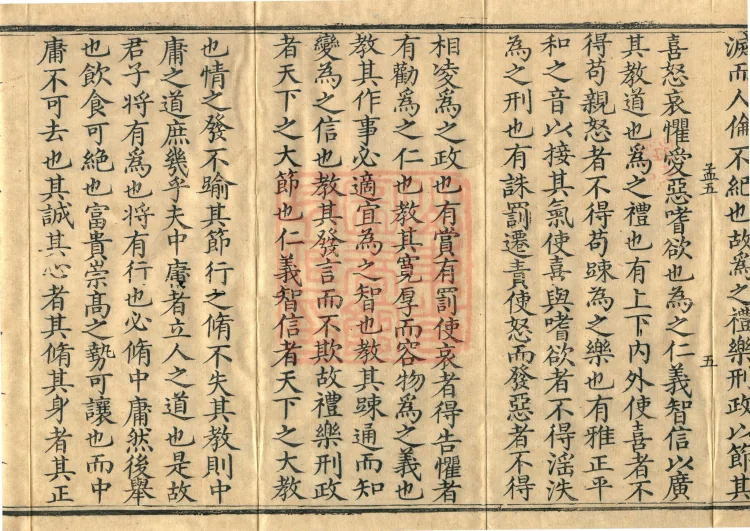 滅而人倫不紀也故爲之禮樂刑政以節其
喜怒哀懼愛惡嗜欲也為之仁義智信以廣
其教道也爲之禮也有上下内外使喜者不
得苟親怒者不得苟踈為之樂也有雅正平
和之音以接其氣使喜與嗜欲者不得滛泆
為之刑也有誅罰遷責使怒而發惡者不得
相凌爲之政也有賞有罰使哀者得告懼者
有勸爲之仁也教其寛厚而容物爲之義也
教其作事必適宜為之智也教其踈通而知
變為之信也教其發言而不欺故禮樂刑政
者天下之大節也仁義智信者天下之大教
也情之發不踰其節行之脩不失其教則中
庸之道庶幾乎夫中庸者立人之道也是故
君子将有為也将有行也必脩中庸然後舉
也飲食可絶也富貴崇髙之勢可讓也而中
庸不可去也其誠其心者其脩其身者其正
孟五
五